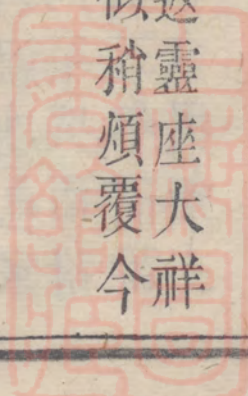 返靈座大祥
似稍煩覆今